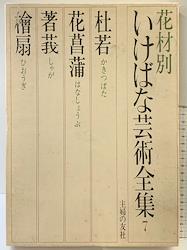 花材別
いけばな芸術全集 7
杜若
かきつばた
花菖蒲
はなしょうぶ
著莪
しゃが
檜扇
ひおうぎ
主婦の友社